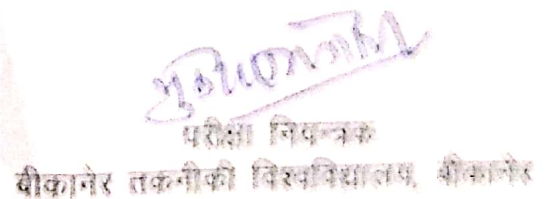 परीक्षा नियन्त्रक
बीकानेर तकनीकी विश्वविद्यालय, बीकानेर